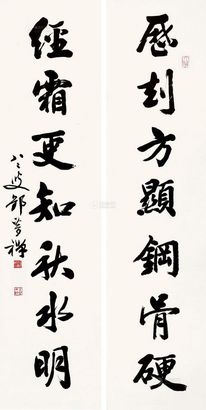 歷劫方顯鋼骨硬
經霜更知秋水明
八二叟郭夢禪